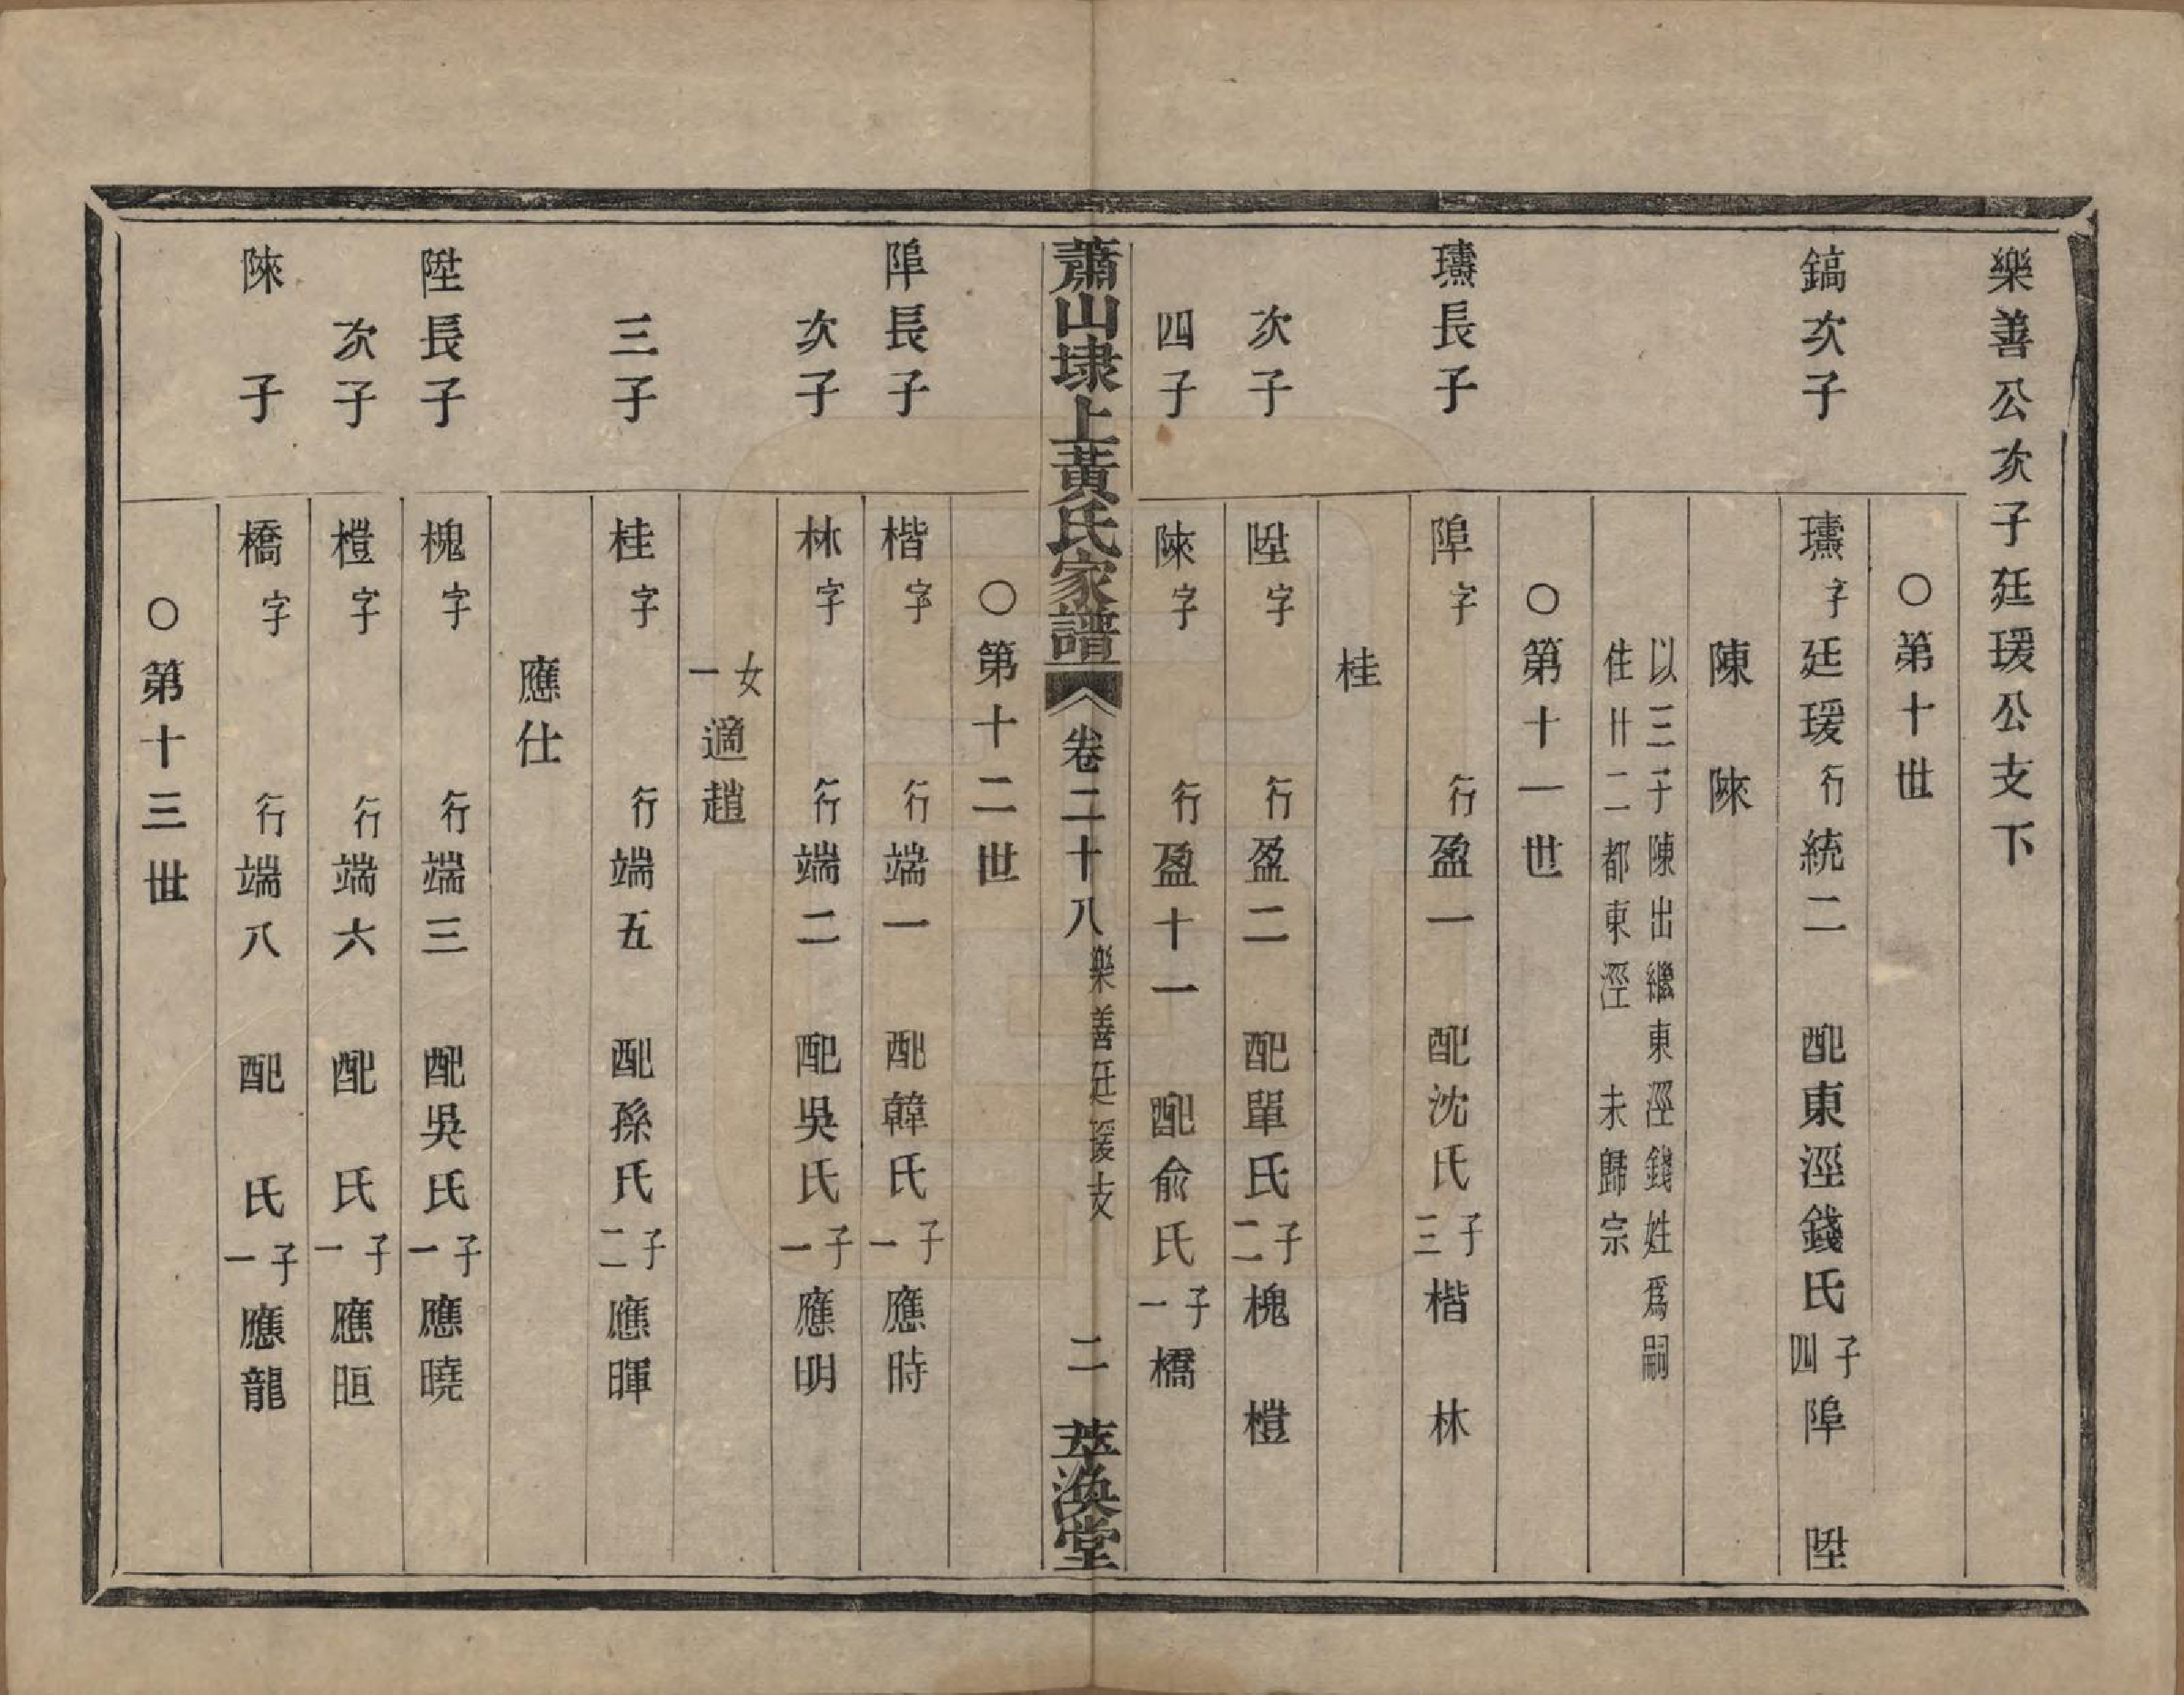 樂善公次子廷瑗公支下
○第十世
鎬次子 瓙字廷瑗行統二 配東涇錢氏子四埠 陞
陳 陜
以三子陳出繼東涇錢姓爲嗣
住廿二都東涇 未歸宗
○第十一世
長子 埠字 行盈一 配沈氏子三楷 林
桂
次子 陞字 行盈二 配單氏子二槐 榿
四子 陜字 行盈十一 配俞氏子一橋
蕭山埭上黃氏家譜 卷二十八 樂善廷瑗支 二 萃渙堂
○第十二世
埠長子 楷字 行端一 配韓氏子一應時
次子 林字 行端二 配吳氏子一應明
女一適趙
三子 桂字 行端五 配孫氏子二應暉
應仕
陞長子 槐字 行端三 配吳氏子一應曉
次子 榿字 行端六 配 氏子一應晅
陜 子 橋字 行端八 配 氏子一應龍
○第十三世